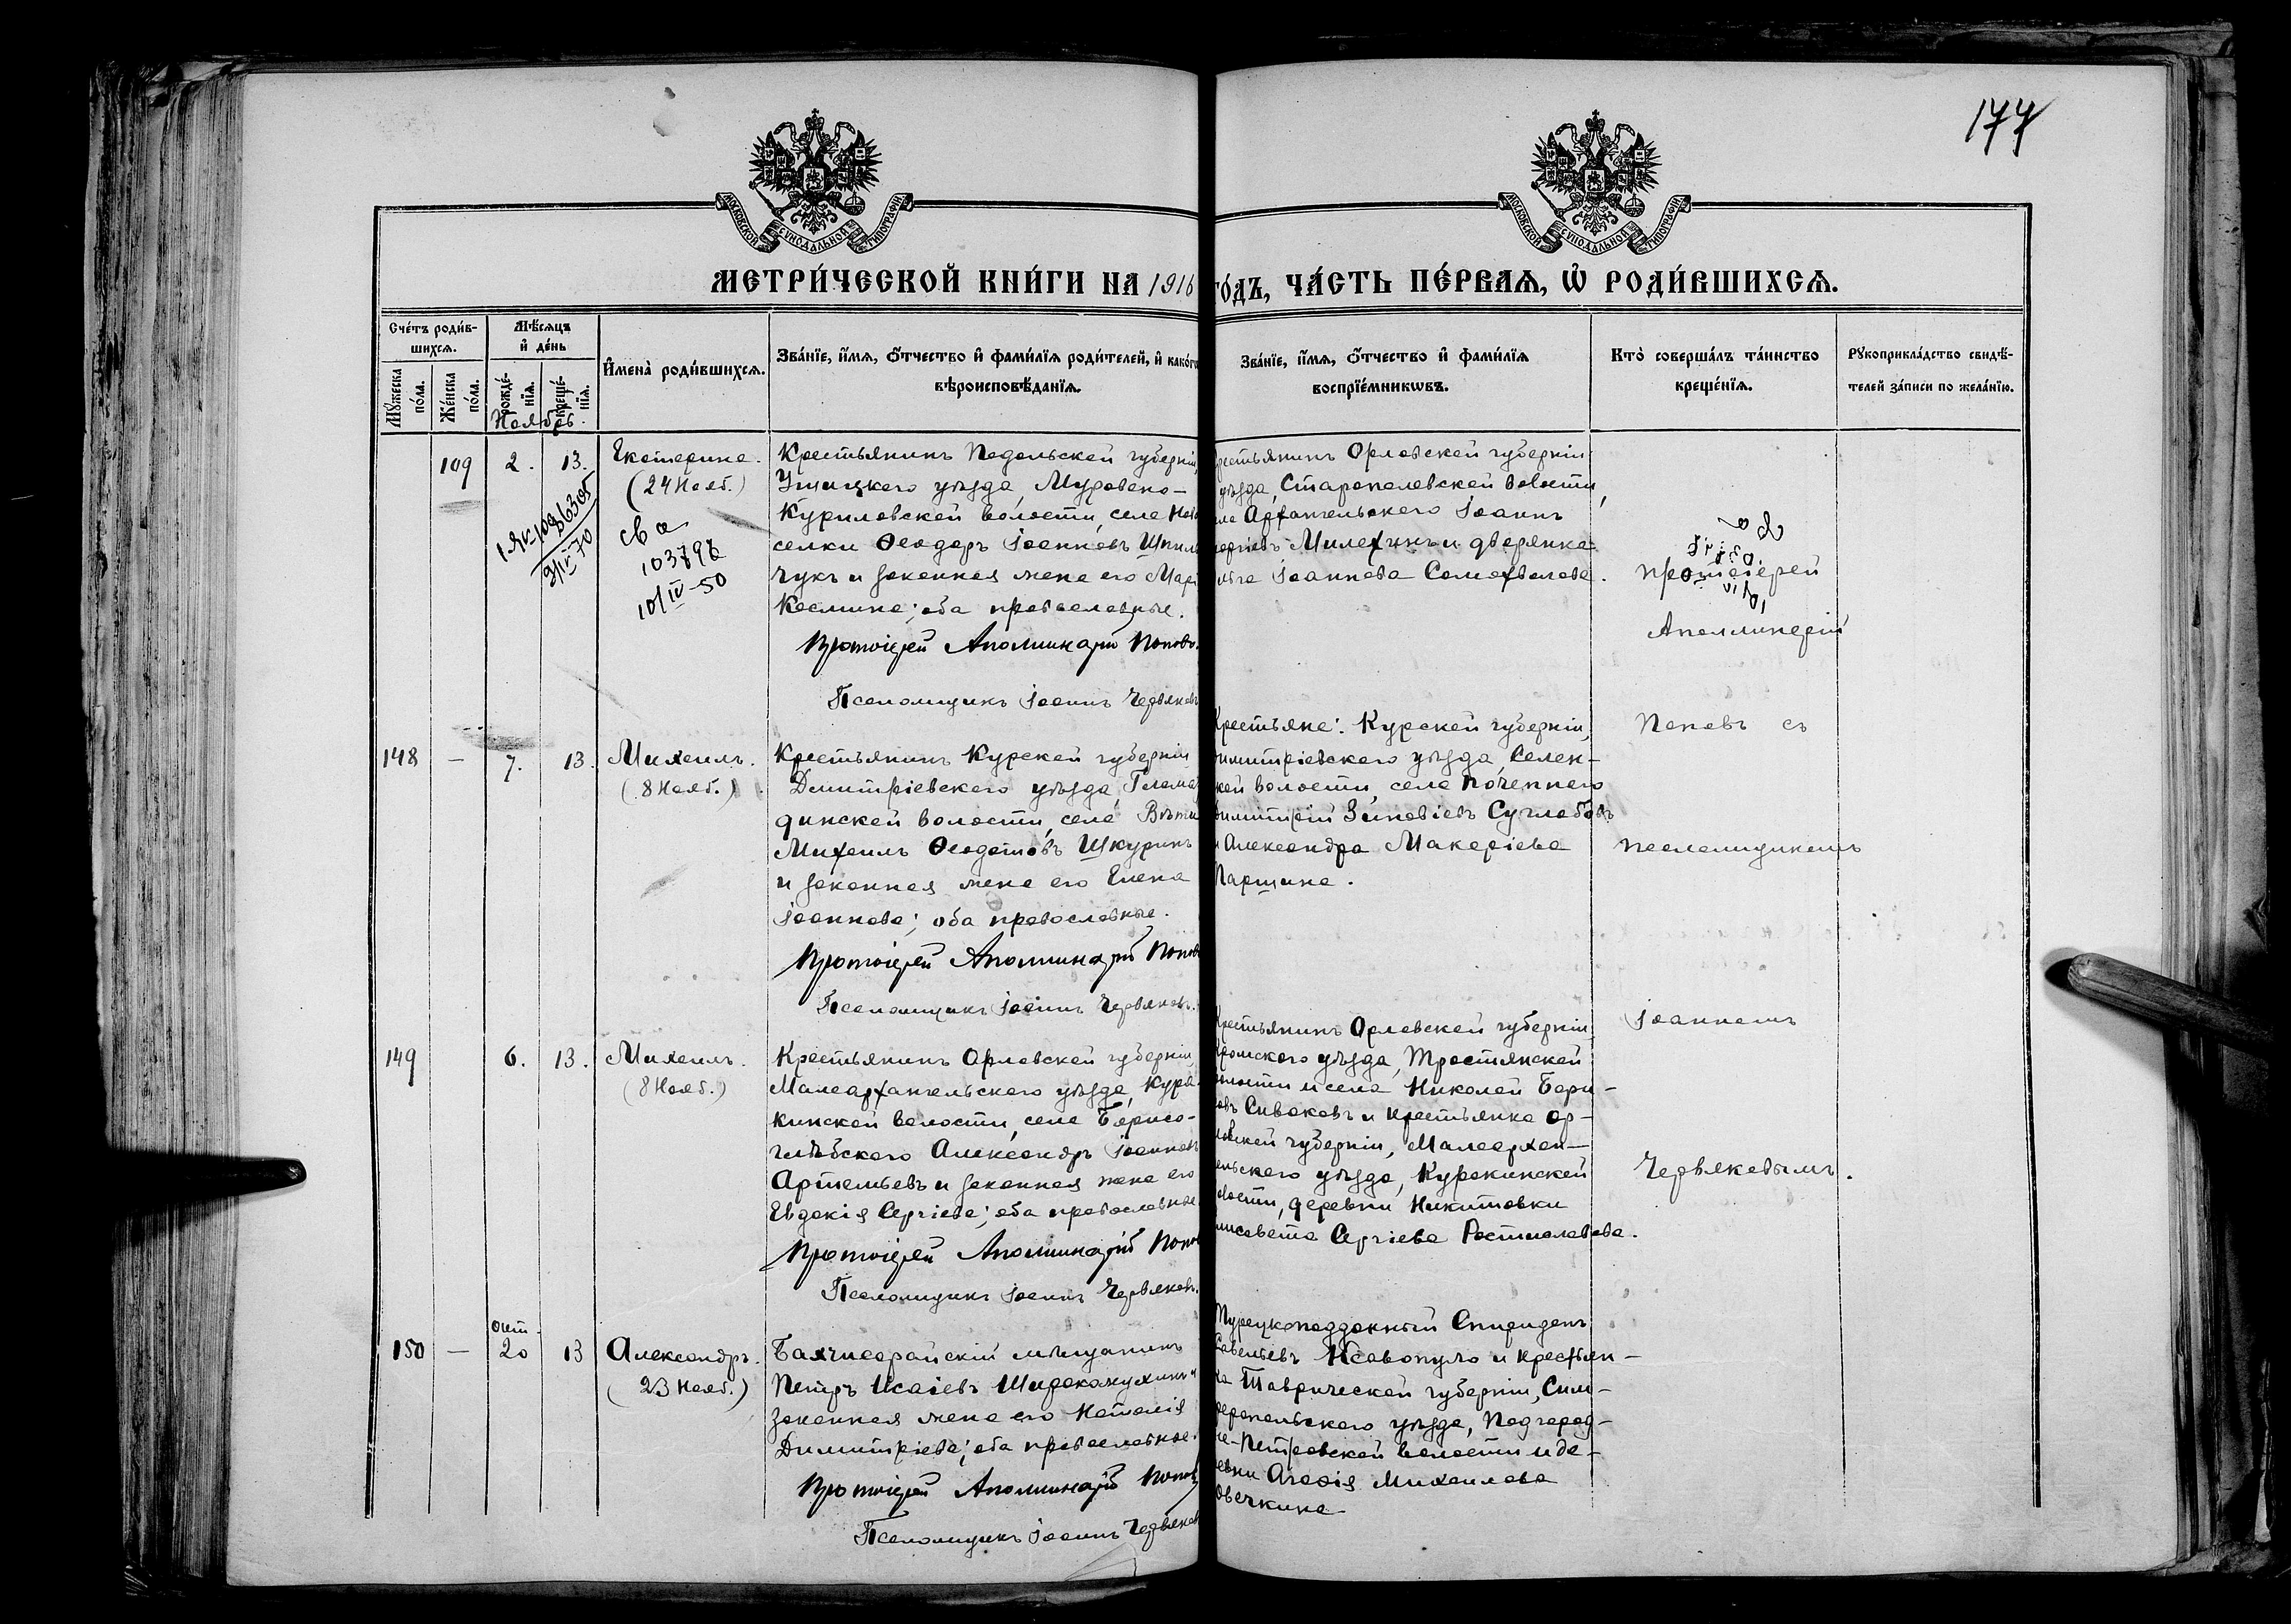 177
МОСКОВСКОЙ СУНОДАЛЬНОЙ ТИПОГРАФІИ
МОСКОВСКОЙ СУНОДАЛЬНОЙ ТИПОГРАФІИ
МЕТРИ́ЧЕСКОЙ КНИ́ГИ НА 1916 ГО́ДЪ, ЧА́СТЬ ПЕ́РВАѦ, Ѡ РОДИ́ВШИХСѦ.
Сче́тъ роди́в-
шихсѧ.
Мꙋ́жеска по́ла.
Же́нска по́ла.
Мѣ́сѧцъ
и҆ де́нь
рожде́-
нїѧ.
креще́-
нїѧ.
Ноябрь.
И҆мена̀ роди́вшихсѧ.
Зва́нїе, и҆́мѧ, ѻ҆́тчество и҆ фами́лїѧ роди́телей, и҆ како́гѡ
вѣроисповѣ́данїѧ.
Зва́нїе, и҆́мѧ, ѻ҆́тчество и҆ фами́лїѧ
воспрїе́мникѡвъ.
Кто̀ соверша́лъ та́инство
креще́нїѧ.
Рꙋкоприкла́дство свидѣ́-
телей за́писи по жела́нїю.
109 2. 13. Екатерина.
(24 Нояб.)
св а
103797
10/IV-50
Крестьянинъ Подольской губерніи,
Ушицкого уѣзда, Муровано-
Куриловской волости, села Ново
селки Ѳеодоръ Іоанновъ Шпиль
чукъ и законная жена его Марі
Космина; оба православные.
Протоіерей Аполлинарій Поповъ.
Псаломщикъ Іоаннъ Червяковъ
рестьянинъ Орловской губерніи
уѣзда, Старополевской волости,
ла Архангельского Іоаннъ
оргіевъ Милехинъ и дворянка
Іоаннова Самохвалова.
148 — 7. 13. Михаилъ.
(8 Нояб.)
Крестьянинъ Курской губерніи
Дмитріевского уѣзда, Глама
динской волости, села
Михаилъ Ѳеодотовъ Шкуринъ
и законная жена его Елена
Іоаннова; оба православные.
Протоіерей Аполлинарій Поповъ
Псаломщикъ Іоаннъ Червяковъ.
Крестьяне: Курской губерніи,
имитріевского уѣзда, Селен-
кой волости, села Поченного
имитрій Зиновіевъ Суглобовъ
и Александра Макаріева
Паршина.
149 6. 13. Михаилъ.
(8 Нояб.)
Крестьянинъ Орловской губерніи,
Малоархангельского уѣзда, Кура-
кинской волости, села Борисо-
глѣбского Александръ Іоанновъ
Артемьевъ и законная жена его
Евдокія Сергіева; оба православные
Протоіерей Аполлинарій Попов
Псаломщикъ Іоаннъ Червяковъ.
Крестьянинъ Орловской губерніи,
ромского уѣзда, Тростянской
волости и села Николай Бори-
совъ Сиваковъ и крестьянка Ор-
ловской губерніи, Малоархан-
ельского уѣзда, Куракинской
волости, деревни Никитовки
лисавета Сергіева Ростиславова.
150 — Окт. 20 13 Александръ.
(23 Нояб.)
Бахчисарайскій мѣщанинъ
Петръ Исаіевъ и
законная жена его Наталія
Димитріева; оба православные.
Протоіерей Аполлинарій Поповъ
Псаломщикъ Іоаннъ Червяков
Турецкоподданный Спиридонъ
Савельевъ Ксавопуло и крестьян-
ка Таврической губерніи, Сим-
феропольского уѣзда, Подгород-
не-Петровской волости и де-
ревни Агаѳія Михаилова
Овечкина
протоіерей
Аполлинарій
Поповъ съ
псаломщикомъ
Іоанномъ
Червяковымъ.